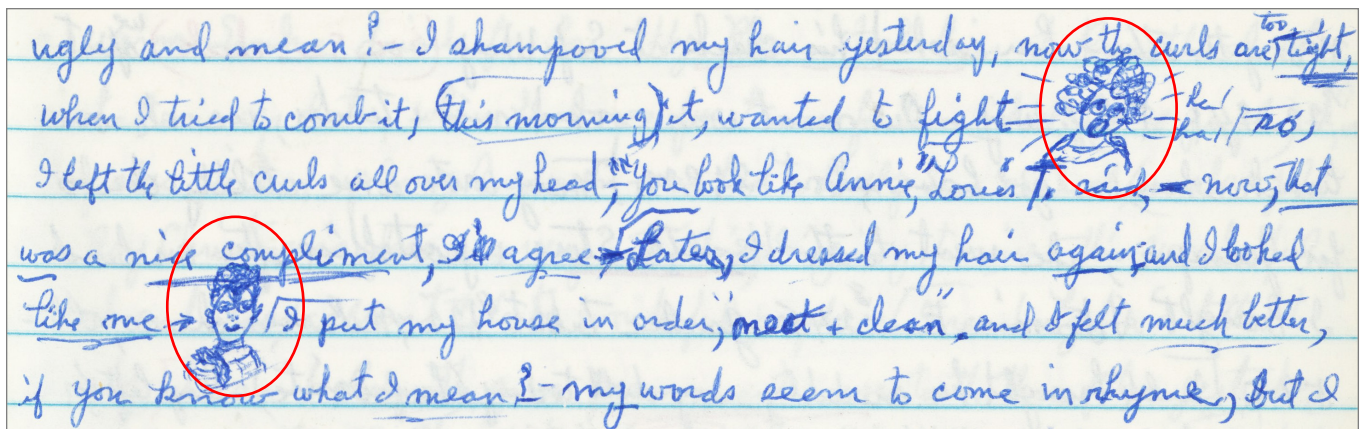 ugly and mean? - I shampooed my hair yesterday, now the curls are too tight,
when I tried to comb it, (this morning) it, wanted to fight - ha! ha! / no,
I left the little curls all over my head, "you look like Annie," Louis T. said, - now, that
was a nice compliment, I'll agree - Later, I dressed my hair again, and I looked
like me → / I put my house in order, "neat + clean", and I felt much better,
if you know what I mean? - my words seem to come in rhyme, but I